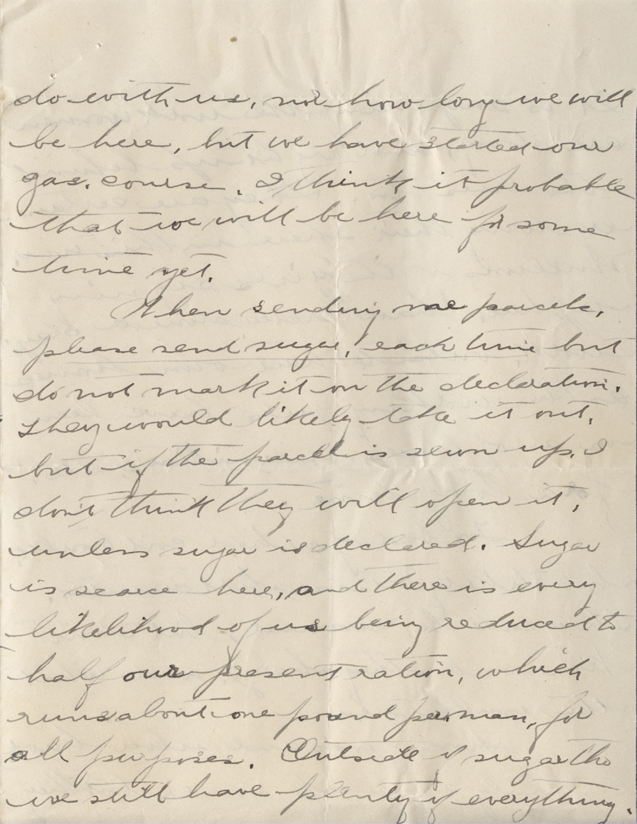 do with us, nor how long we will
be here, but we have started our
gas. course. I think it probable
that we will be here for some
time yet.
When sending me parcels,
please sent sugar, each time but
do not mark it on the declaration.
They would likely take it out,
but if the parcel is sewn up, I
don't think they will open it,
unless sugar is declared. Sugar
is scarce here, and there is every
likelihood of us being reduced to
half our present ration, which
runs about one pound per man, for
all purposes. Outside of sugar tho
we still have plenty of everything.